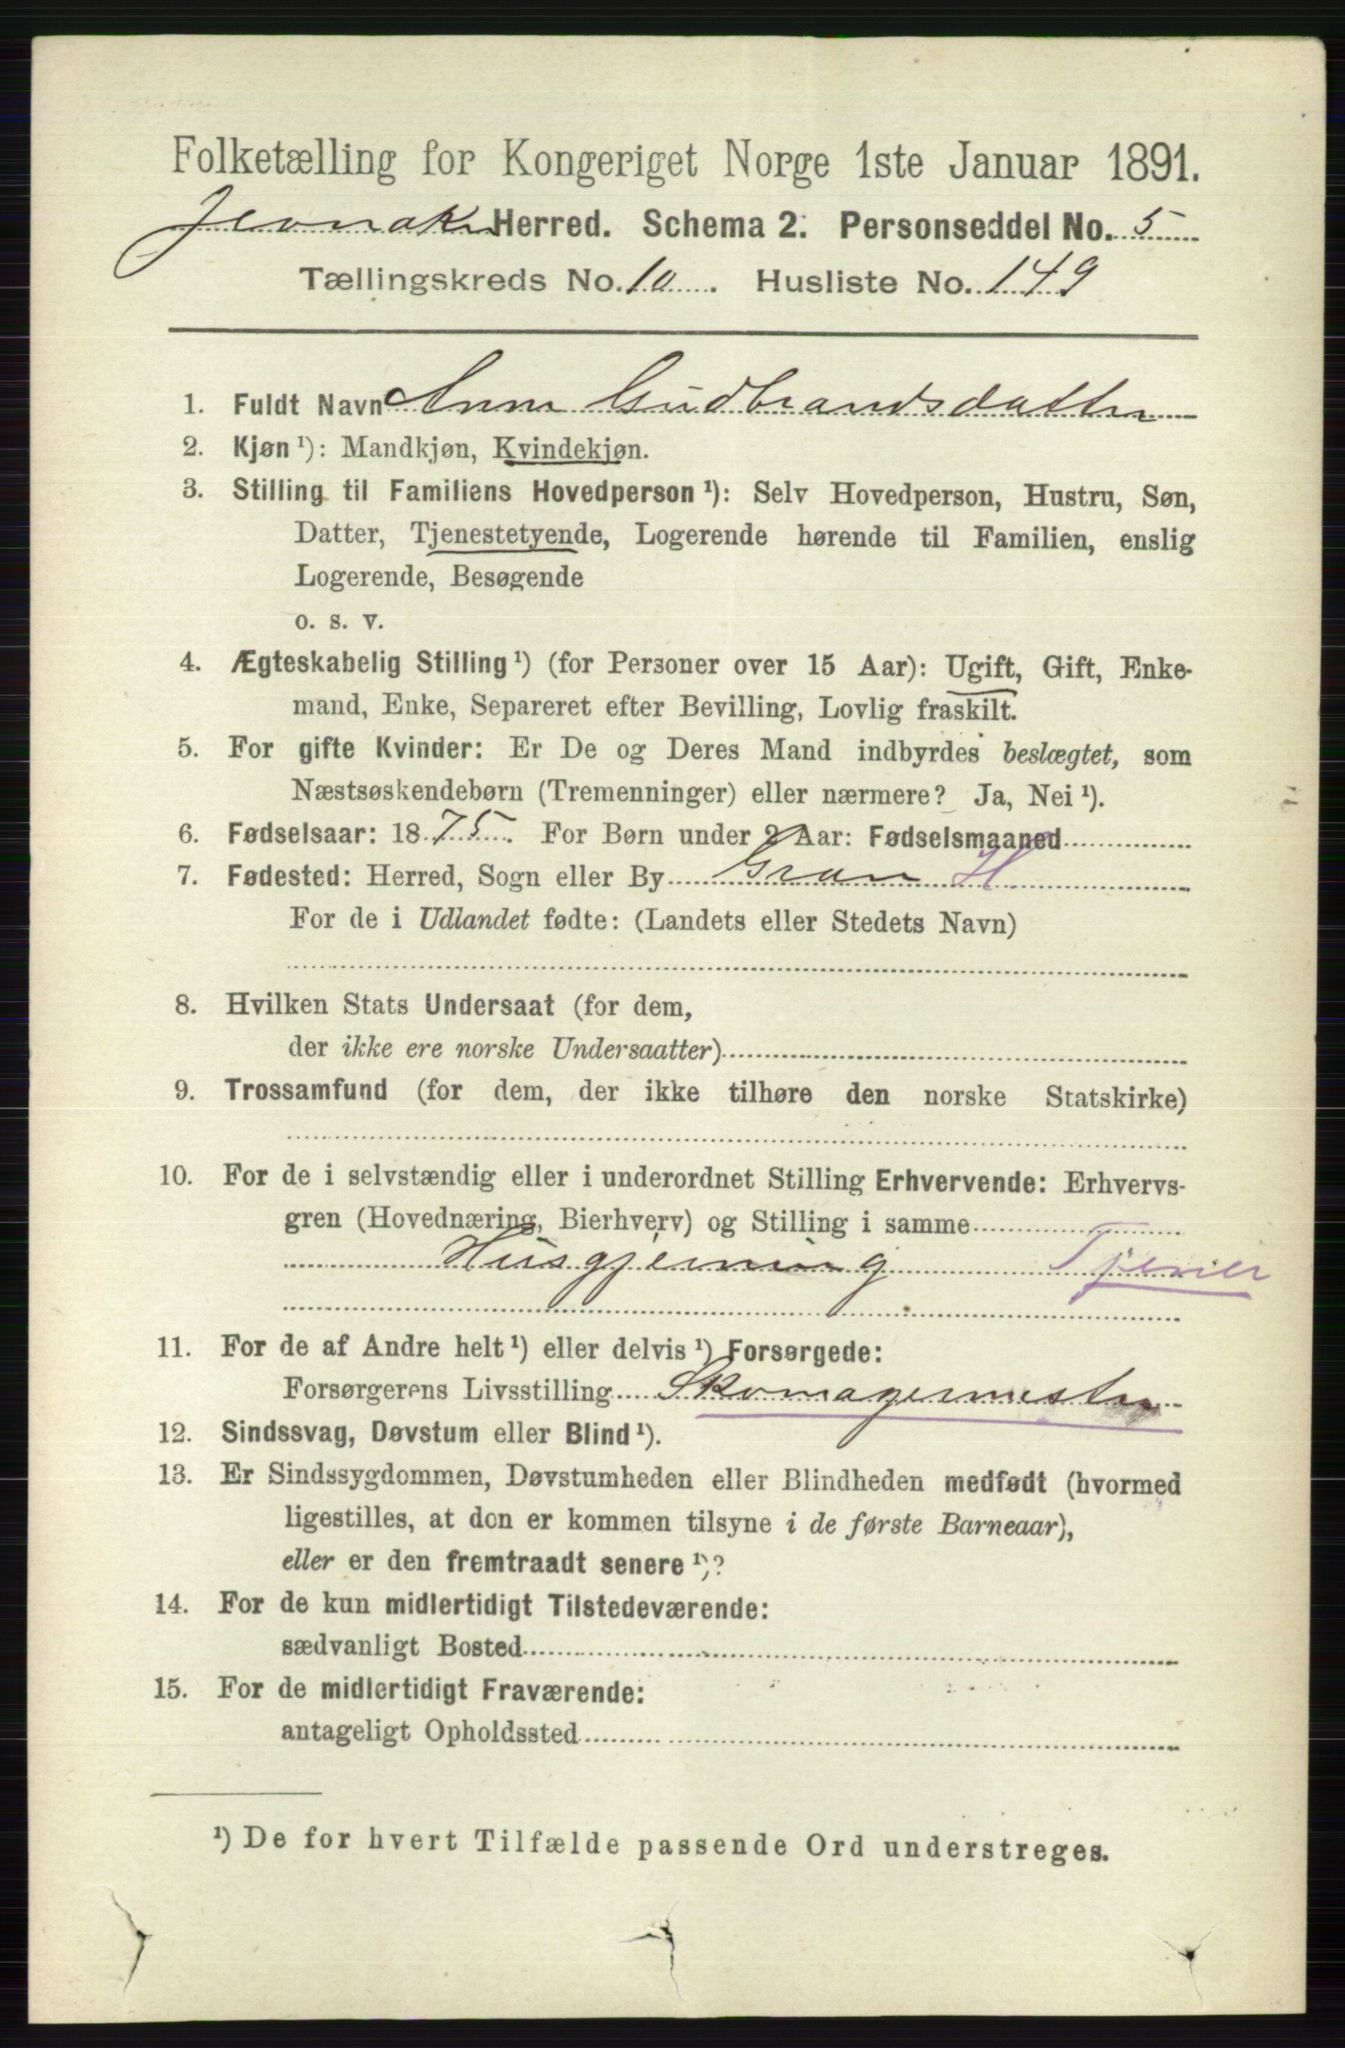 Folketælling for Kongeriget Norge 1ste Januar 1891.
Jevnaker Herred. Schema 2. Personseddel No. 5
Tællingskreds No. 10. Husliste No. 149
1. Fuldt Navn Anne Gudbrandsdatter
2. Kjøn ¹): Mandkjøn, Kvindekjøn.
3. Stilling til Familiens Hovedperson ¹): Selv Hovedperson, Hustru, Søn,
Datter, Tjenestetyende, Logerende hørende til Familien, enslig
Logerende, Besøgende
o. s. v.
4. Ægteskabelig Stilling ¹) (for Personer over 15 Aar): Ugift, Gift, Enke-
mand, Enke, Separeret efter Bevilling, Lovlig fraskilt.
5. For gifte Kvinder: Er De og Deres Mand indbyrdes beslægtet, som
Næstsøskendebørn (Tremenninger) eller nærmere? Ja, Nei ¹).
6. Fødselsaar: 1875. For Børn under 2 Aar: Fødselsmaaned
7. Fødested: Herred, Sogn eller By Gran H
For de i Udlandet fødte: (Landets eller Stedets Navn)
8. Hvilken Stats Undersaat (for dem,
der ikke ere norske Undersaatter)
9. Trossamfund (for dem, der ikke tilhøre den norske Statskirke)
10. For de i selvstændig eller i underordnet Stilling Erhvervende: Erhvervs-
gren (Hovednæring, Bierhverv) og Stilling i samme
Husgjerning Tjener
11. For de af Andre helt ¹) eller delvis ¹) Forsørgede:
Forsørgerens Livsstilling Skomagermester
12. Sindssvag, Døvstum eller Blind ¹).
13. Er Sindssygdommen, Døvstumheden eller Blindheden medfødt (hvormed
ligestilles, at den er kommen tilsyne i de første Barneaar),
eller er den fremtraadt senere ¹)?
14. For de kun midlertidigt Tilstedeværende:
sædvanligt Bosted
15. For de midlertidigt Fraværende:
antageligt Opholdssted
¹) De for hvert Tilfælde passende Ord understreges.